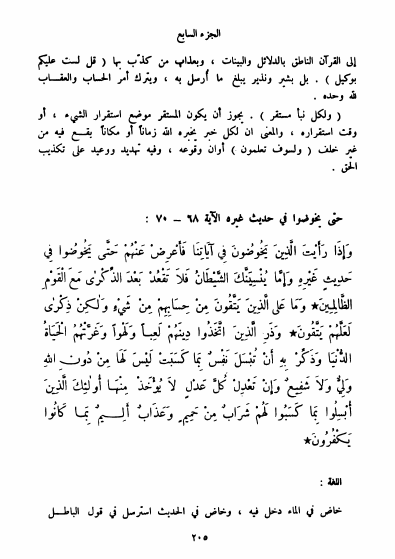 الجزء السابع
إلى القرآن الناطق بالدلائل والبينات ، وبعذاب من كذّب بها ( قل لست عليكم
بوكيل ) . بل بشير ونذير يبلغ ما أرسل به ، ويترك أمر الحساب والعقـاب
لله وحده .
( ولكل نبأ مستقر ) . يجوز أن يكون المستقر موضع استقرار الشيء ، أو
وقت استقراره ، والمعنى ان لكل خبر يخبره الله زماناً أو مكاناً يقـع فيه من
غير خلف ( ولسوف تعلمون ) أوان وقوعه ، وفيه تهديد ووعيد على تكذيب
الحق .
حتى يخوضوا في حديث غيره الآية ٦٨ – ٧٠ :
وَإِذَا رَأَيْتَ الَّذِينَ يَخُوضُونَ فِي آيَاتِنَا فَأَعْرِضْ عَنْهُمْ حَتَّى يَخُوضُوا فِي
حَدِيثٍ غَيْرِهِ وَإِمَّا يُنْسِيَنَّكَ الشَّيْطَانُ فَلَا تَقْعُدْ بَعْدَ الذِّكْرَى مَعَ الْقَوْمِ
الظَّالِمِينَ★ وَمَا عَلَى الَّذِينَ يَتَّقُونَ مِنْ حِسَابِهِمْ مِنْ شَيْءٍ وَلَكِنْ ذِكْرَى
لَعَلَّهُمْ يَتَّقُونَ★ وَذَرِ الَّذِينَ اتَّخَذُوا دِينَهُمْ لَعِباً وَلَهْواً وَغَرَّتْهُمُ الْحَيَاةُ
الدُّنْيَا وَذَكِّرْ بِهِ أَنْ تُبْسَلَ نَفْسٌ بِمَا كَسَبَتْ لَيْسَ لَهَا مِنْ دُونِ اللهِ
وَلِيٌّ وَلَا شَفِيعٌ وَإِنْ تَعْدِلْ كُلَّ عَدْلٍ لَا يُؤْخَذْ مِنْهَا أُولَئِكَ الَّذِينَ
أُبْسِلُوا بِمَا كَسَبُوا لَهُمْ شَرَابٌ مِنْ حَمِيمٍ وَعَذَابٌ أَلِيمٌ بِمَا كَانُوا
يَكْفُرُونَ★
اللغة :
خاض في الماء دخل فيه ، وخاض في الحديث استرسل في قول الباطـل
٢٠٥